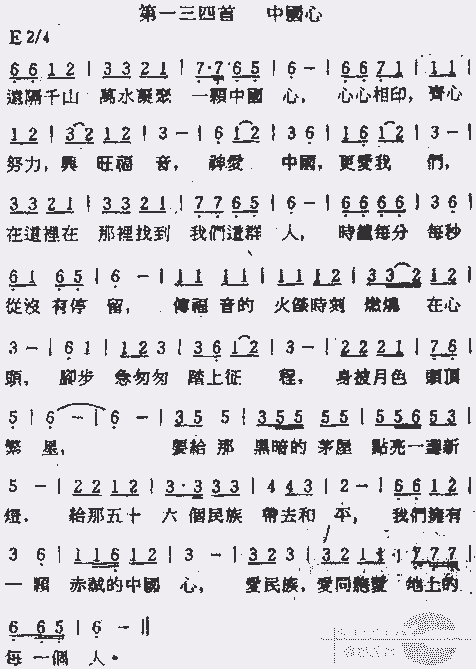 第一三四首　中國心
E 2/4
6 6 1 2 | 3 3 2 1 | 7·7 6 5 | 6 - | 6 6 7 1 | 1 1 |
遠隔千山 萬水凝聚 一顆中國 心， 心心相印，齊心
1 2 | 3 2 1 2 | 3 - | 6 1 2 | 3 6 | 1 6 1 2 | 3 - |
努力，興 旺福 音， 神愛 中國，更愛我 們，
3 3 2 1 | 3 3 2 1 | 7 7 6 5 | 6 - | 6 6 6 6 | 3 6 |
在這裡在 那裡找到 我們這群 人， 時鐘每分 每秒
6 1 6 5 | 6 - | 1 1 1 1 | 1 1 1 2 | 3 3 2 1 2 |
從沒 有停 留， 傳福 音的 火燄時刻 燃燒 在心
3 - | 6 1 | 1 2 3 | 3 6 1 2 | 3 - | 2 2 2 1 | 7 6 |
頭， 腳步 急匆匆 踏上征 程， 身被月色 頭頂
5 | 6 - | 6 - | 3 5 5 | 3 5 5 5 | 5 5 6 5 3 |
繁 星， 要給 那 黑暗的 茅屋 點亮一盞新
5 - | 2 2 1 2 | 3·3 3 3 | 4 4 3 | 2 - | 6 6 1 2 |
燈， 給那五十 六個民族 帶去和 平， 我們擁有
3 6 | 1 1 6 1 2 | 3 - | 3 2 3 | 3 2 1 1 · 7 7 7 |
一顆 赤誠的中國 心， 愛民族，愛同胞愛 地上的
6 6 5 | 6 - ||
每一個 人。